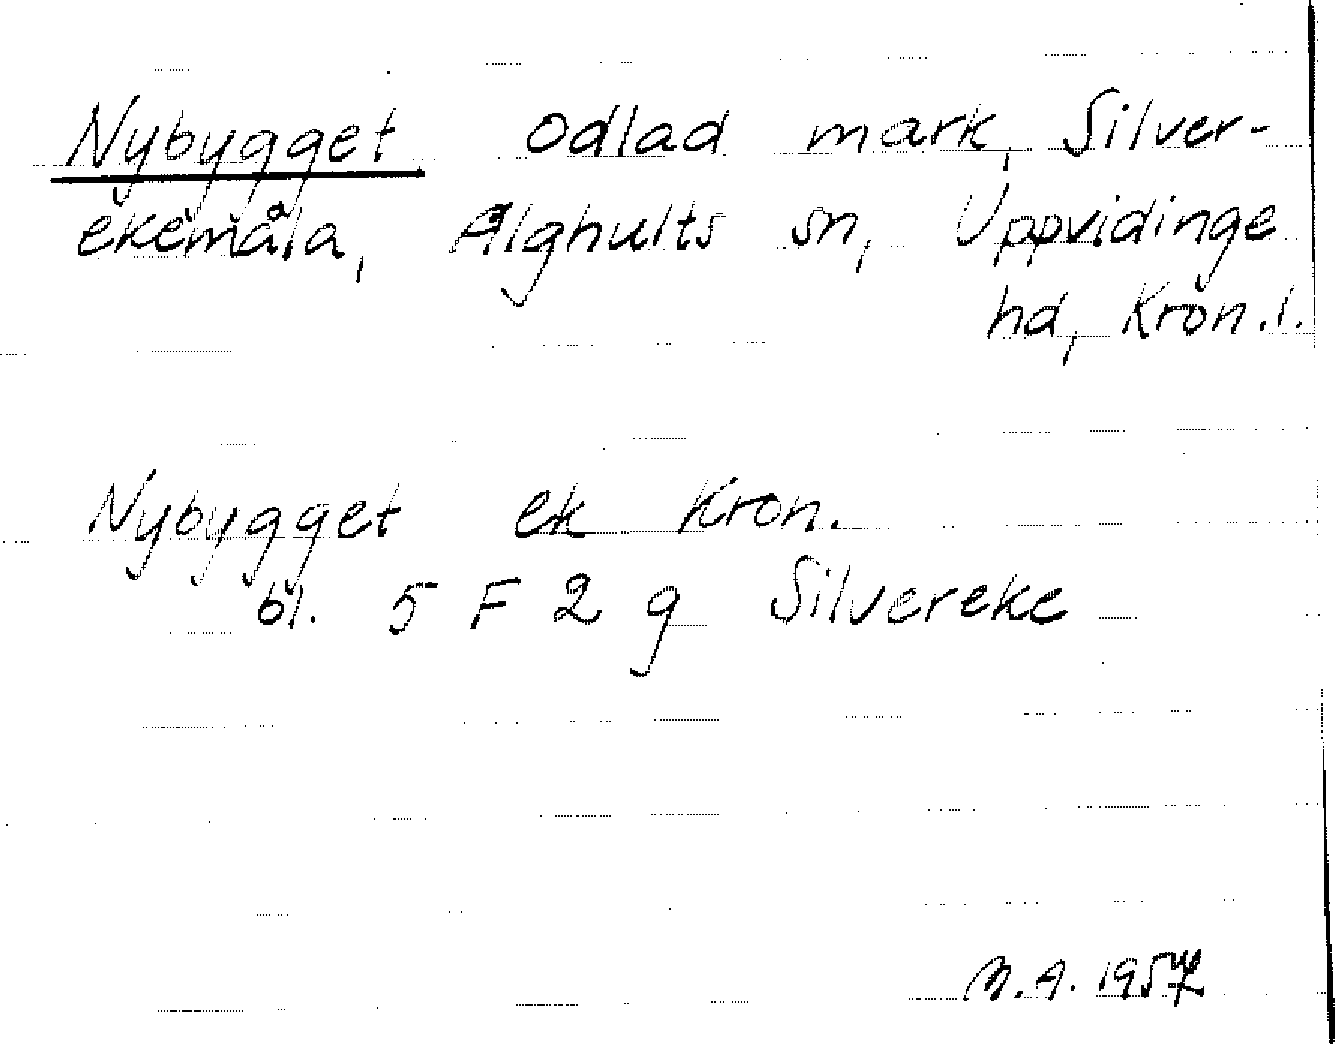 Nybygget odlad mark, Silver-
ekemåla, Älghults sn, Uppvidinge
hd, Kron.l.
Nybygget ek Kron.
bl. 5 F 2 g Silvereke
M.A. 1957